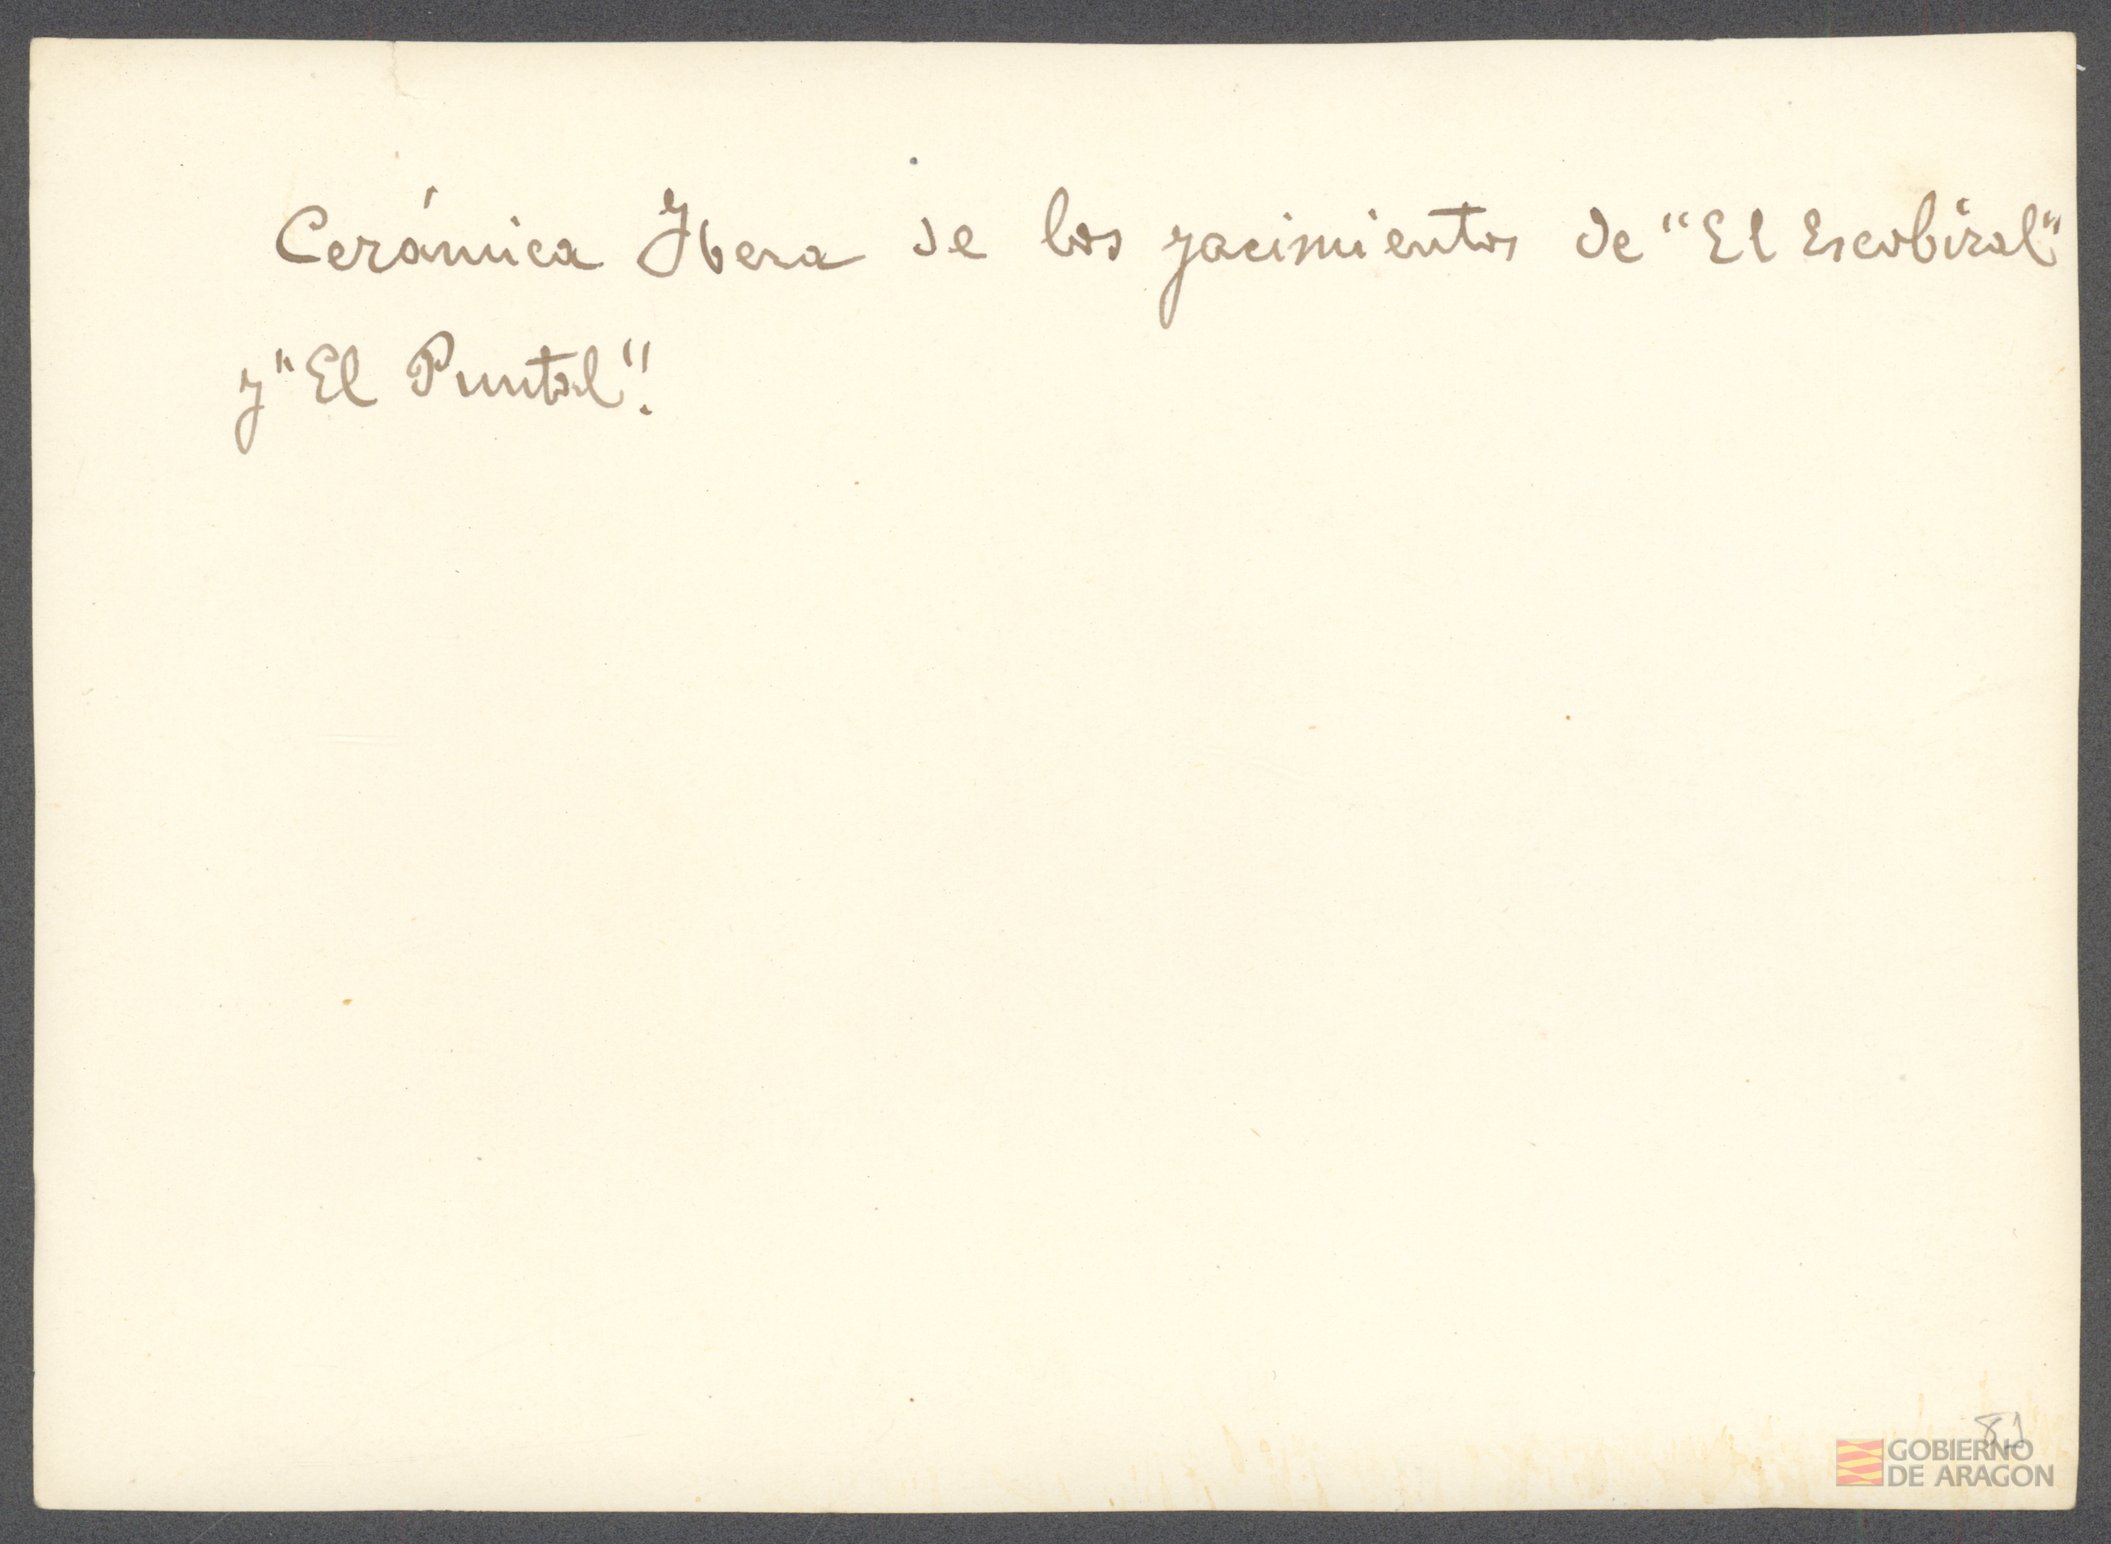 Cerámica Ybera de los yacimientos de "El Escobiral"
y "El Puntal".
81
GOBIERNO
DE ARAGON